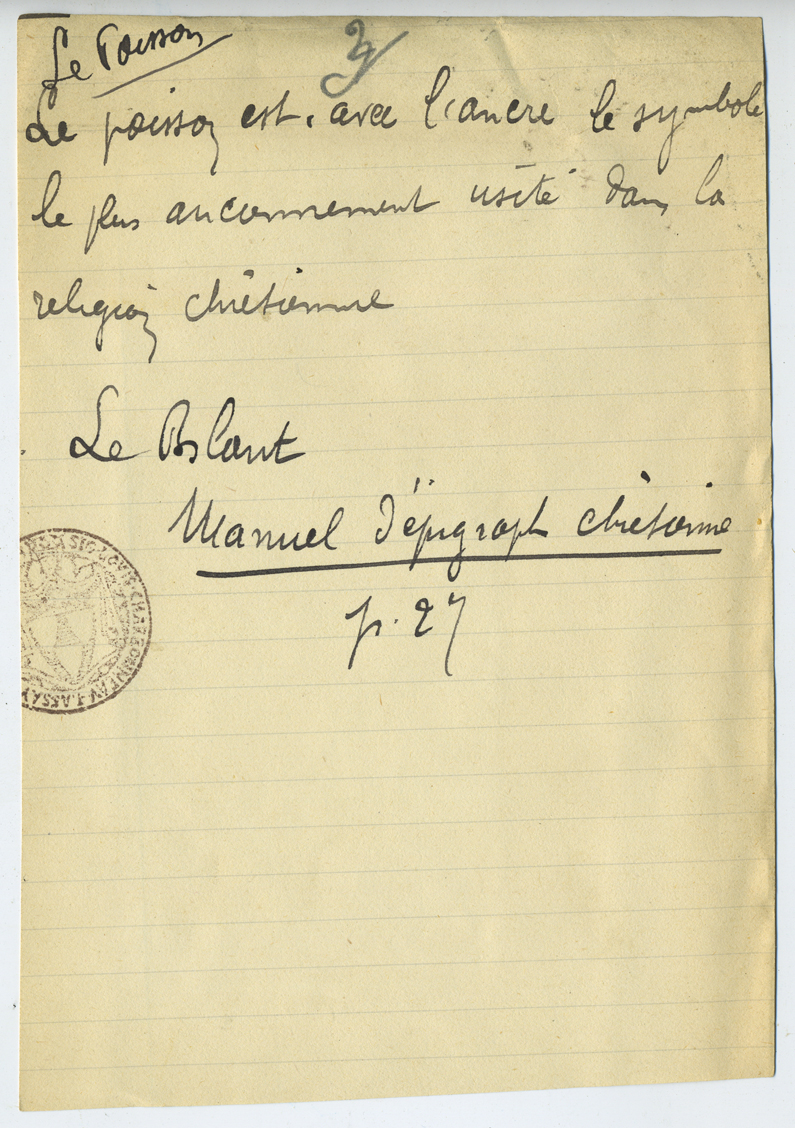 Le Poisson
3
Le poisson est, avec l'ancre le symbole
le plus anciennement usité dans la
religion chrétienne
Le Blant
Manuel d'épigraph chrétienne
p. 27
SIG. LOUIS CHARBONNEAU-LASSAY